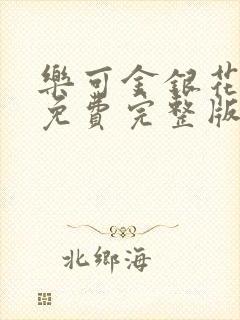 樂可金銀花
免費完整版
北鄉海